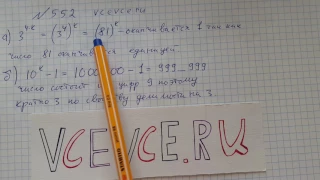 № 552 vcevce.ru
а) 3^4k = (3^4)^k = (81)^k - оканчивается 1 так как
число 81 оканчив единицей
б) 10^k - 1 = 1000...00 - 1 = 999...999
число состоит из цифр 9 поэтому
кратно 3 по свойству делимости на 3.
VCEVCE.RU